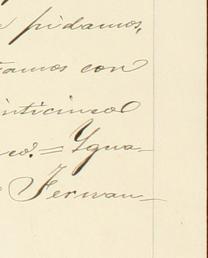 pidamos,
tamos con
inticinco
co. = Ygna-
Fernan-